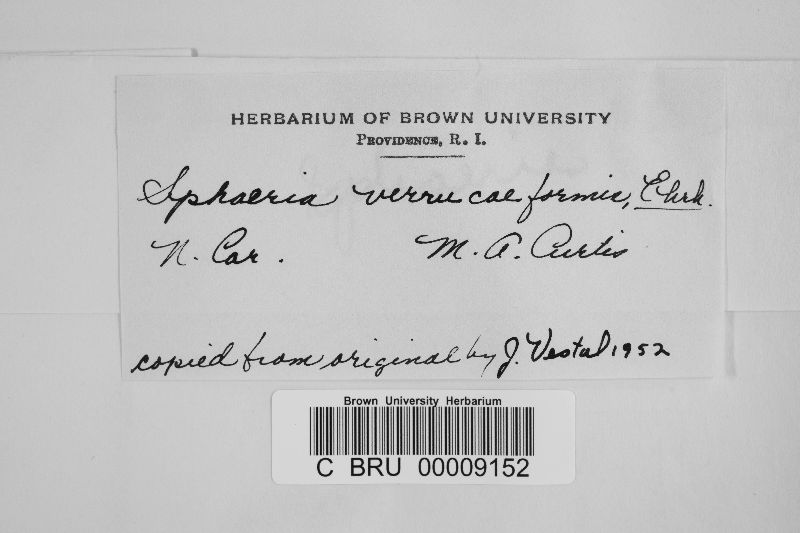 HERBARIUM OF BROWN UNIVERSITY
PROVIDENCE, R. I.
Sphaeria verrucaeformis, Ehrh.
N. Car. M. A. Curtis
copied from original by J. Vestal 1952
Brown University Herbarium
C BRU 00009152